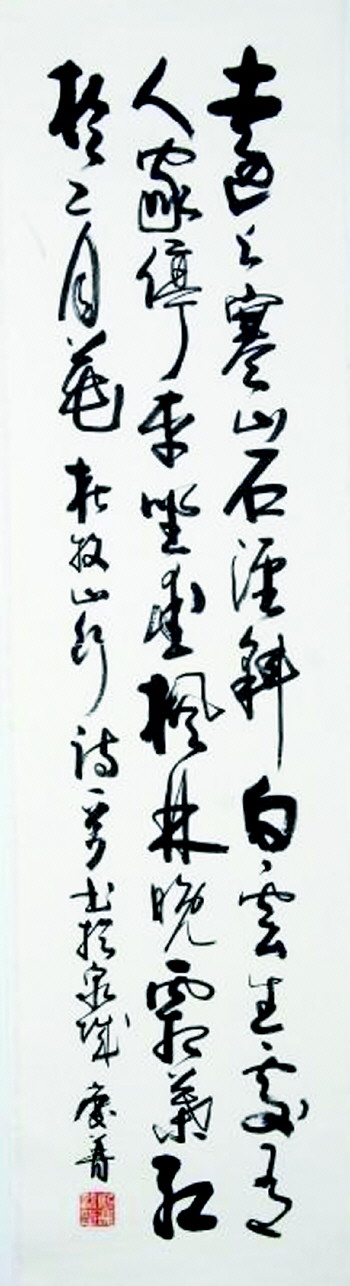 遠上寒山石徑斜白雲生處有
人家停車坐愛楓林晚霜葉紅
於二月花 杜牧山行詩一首書於泉城